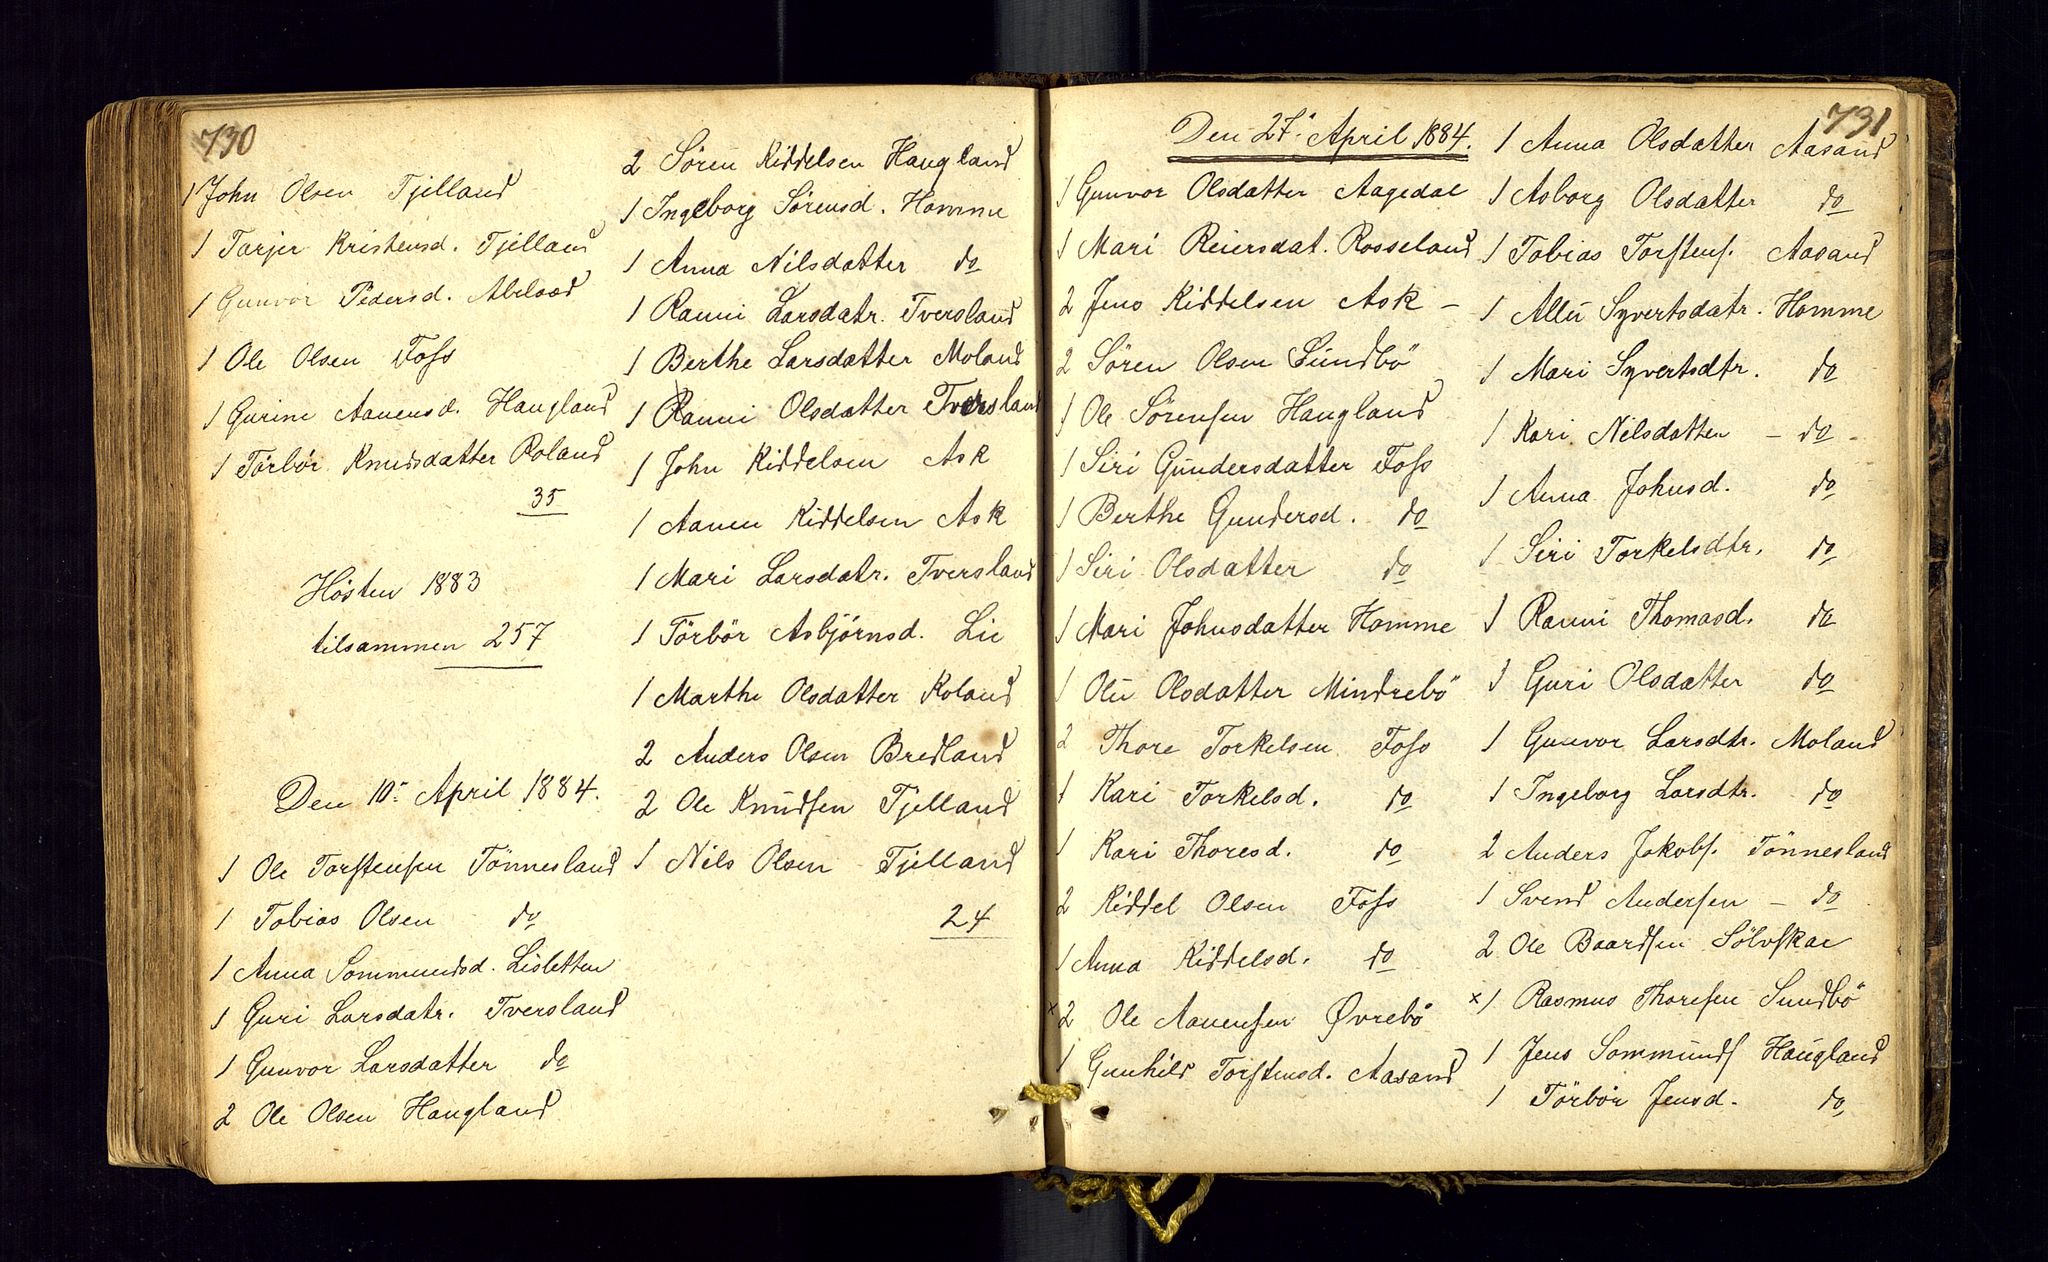 730
1 John Olsen Tjelland
1 Tarjer Kristensd. Tjelland
1 Gunvor Pedersd. Abelsæd
1 Ole Olsen Foss
1 Gurine Aanensd. Haugland
1 Törbör Knudsdatter Roland
35
Hösten 1883
tilsammen 257
Den 10de April 1884.
1 Ole Torstensen Tönnesland
1 Tobias Olsen do
1 Anna Sommundsd. Lisletten
1 Guri Larsdatr. Tversland
1 Gunvor Larsdatter do
2 Ole Olsen Haugland
2 Sören Kiddelsen Haugland
1 Ingeborg Sörensd. Homme
1 Anna Nilsdatter do
1 Ranni Larsdatr. Tversland
1 Berthe Larsdatter Moland
1 Ranni Olsdatter Tversland
1 John Kiddelsen Ask
1 Aanen Kiddelsen Ask
1 Mari Larsdatr. Tversland
1 Törbör Asbjörnsd. Lie
1 Marthe Olsdatter Roland
2 Anders Olsen Bredland
2 Ole Knudsen Tjelland
1 Nils Olsen Tjelland
24
731
Den 27de April 1884.
1 Gunvor Olsdatter Aagedal
1 Mari Reiersdat. Rosseland
2 Jens Kiddelsen Ask –
2 Sören Olsen Sundbö
1 Ole Sörensen Haugland
1 Siri Gundersdatter Foss
1 Berthe Gundersd. do
1 Siri Olsdatter do
1 Mari Johnsdatter Homme
1 Olu Olsdatter Mindrebö
2 Thore Torkelsen Foss
1 Kari Torkelsd. do
1 Kari Thoresd. do
2 Kiddel Olsen Foss
1 Anna Kiddelsd. do
x 2 Ole Aanensen Øvrebö
1 Gunhild Torstensd. Aasand
1 Anna Olsdatter Aasand
1 Asborg Olsdatter do
1 Tobias Torstens. Aasand
1 Allu Syvertsdatr. Homme
1 Mari Syvertsdtr. do
1 Kari Nilsdatter – do –
1 Anna Johnsd. do
1 Siri Torkelsdtr. do
1 Ranni Thomasd. do
1 Guri Olsdatter do
1 Gunvor Larsdtr. Moland
1 Ingeborg Larsdtr. do
2 Anders Jakobs. Tönnesland
1 Svend Andersen – do
2 Ole Baardsen Sölvskar
x 1 Rasmus Thoresen Sundbö
1 Jens Sommunds Haugland
1 Törbör Jensd. do